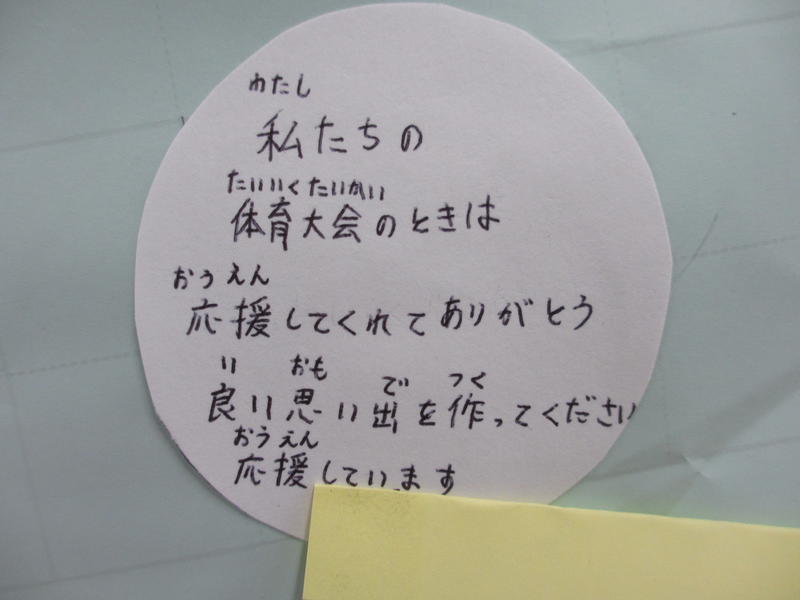 わたし
私たちの
たいいくたいかい
体育大会のときは
おうえん
応援してくれてありがとう
い おも で つく
良い思い出を作ってください
おうえん
応援しています